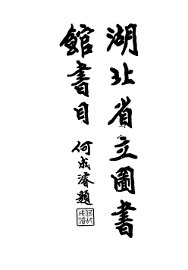 湖北省立圖書
館書目
何成濬題